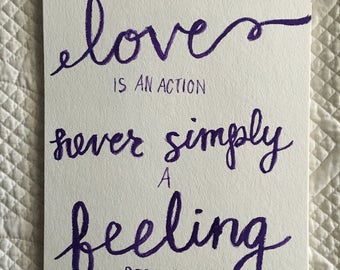 love
IS AN ACTION
never simply
A
feeling